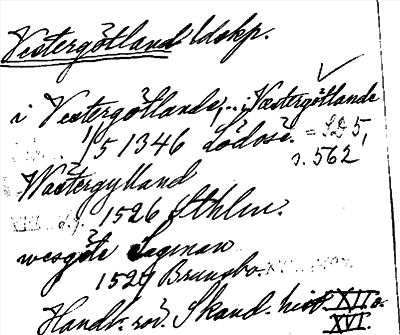 Vestergötland ldskp.
i Vestergötlande, .. i Væstergötlande
1/5 1346 Lödöse. = SD 5,
s. 562
Wästergylland
1526
wesgöte Lagman
1529
Handl. rör. Skand. hist. XII o.
XVI.